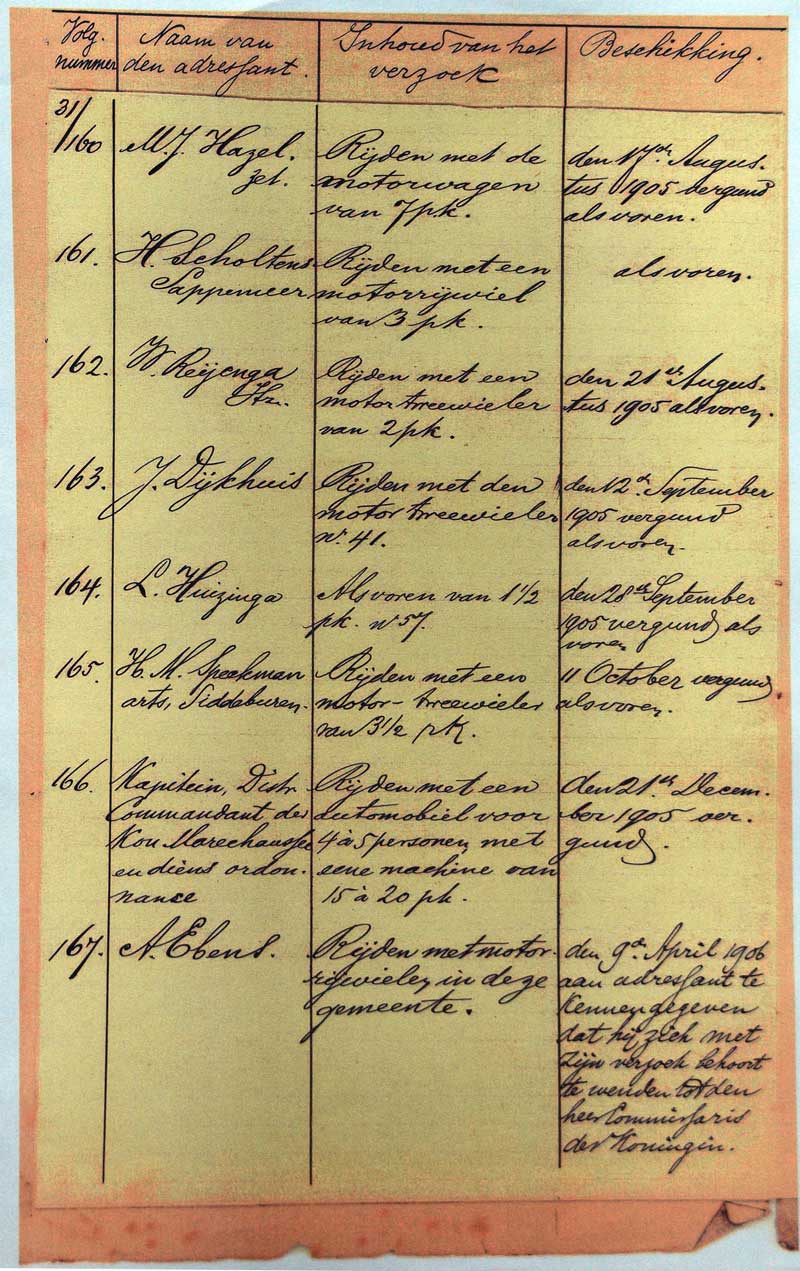 Volg. nummer Naam van den adressant. Inhoud van het verzoek Beschikking.
31/160 M.J. Hazel. Rijden met de den 17de Augus-
zet. motorwagen tus 1905 vergund
van 7 pk. als voren.
161. H. Scholtens Rijden met een als voren.
Sappemeer motorrijwiel
van 3 pk.
162. W. Reijenga Rijden met een den 21sten Augus-
Hzn. motor tweewieler tus 1905 als voren.
van 2 pk.
163. J. Dijkhuis Rijden met den den 12den September
motor tweewieler 1905 vergund
no. 41. als voren.
164. L. Huizinga Als voren van 1 1/2 den 28sten September
pk. no 57. 1905 vergund als
voren
165. H. M. Speekman Rijden met een 11 October vergund
arts, Siddeburen. motor-tweewieler als voren.
van 3 1/2 pk.
166. Kapitein, Distr. Rijden met een den 21sten Decem-
Commandant der automobiel voor ber 1905 ver-
Kon Marechaussee 4 à 5 personen, met gund.
en diens ordon- eene machine van
nance 15 à 20 pk.
167. A. Ebens. Rijden met motor- den 9den April 1906
rijwielen in deze aan adressant te
gemeente. kennen gegeven
dat hij zich met
zijn verzoek behoort
te wenden tot den
heer Commissaris
der Koningin.